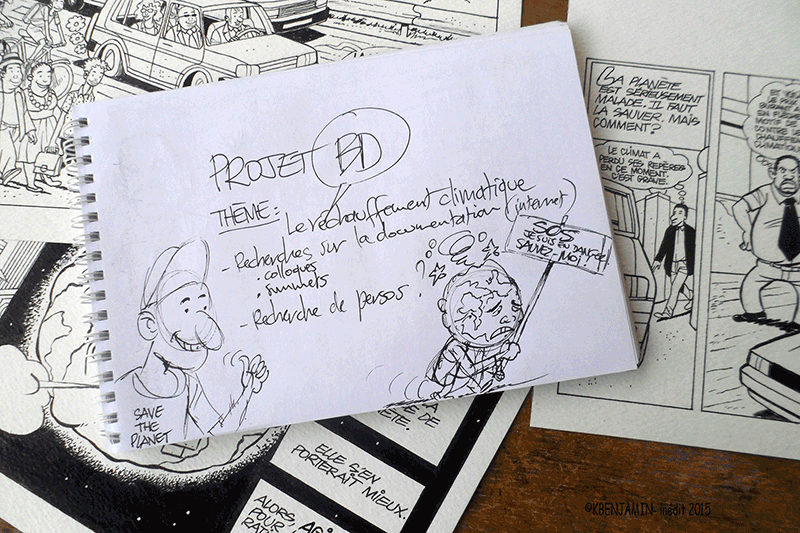 PROJET BD
THÈME: Le réchauffement climatique
- Recherches sur la documentation (internet)
• colloques
• summets
- Recherche de persos ?
SAVE
THE
PLANET
SOS
JE SUIS EN DANGER
SAUVEZ-MOI
LA PLANÈTE
EST SÉRIEUSEMENT
MALADE. IL FAUT
LA SAUVER, MAIS
COMMENT?
LE CLIMAT A
PERDU SES REPÈRES
EN CE MOMENT.
C'EST GRAVE.
CONTRE LE
DE
ELLE S'EN
PORTERAIT MIEUX.
ALORS,
POUR
©KBENJAMIN- Inédit 2015